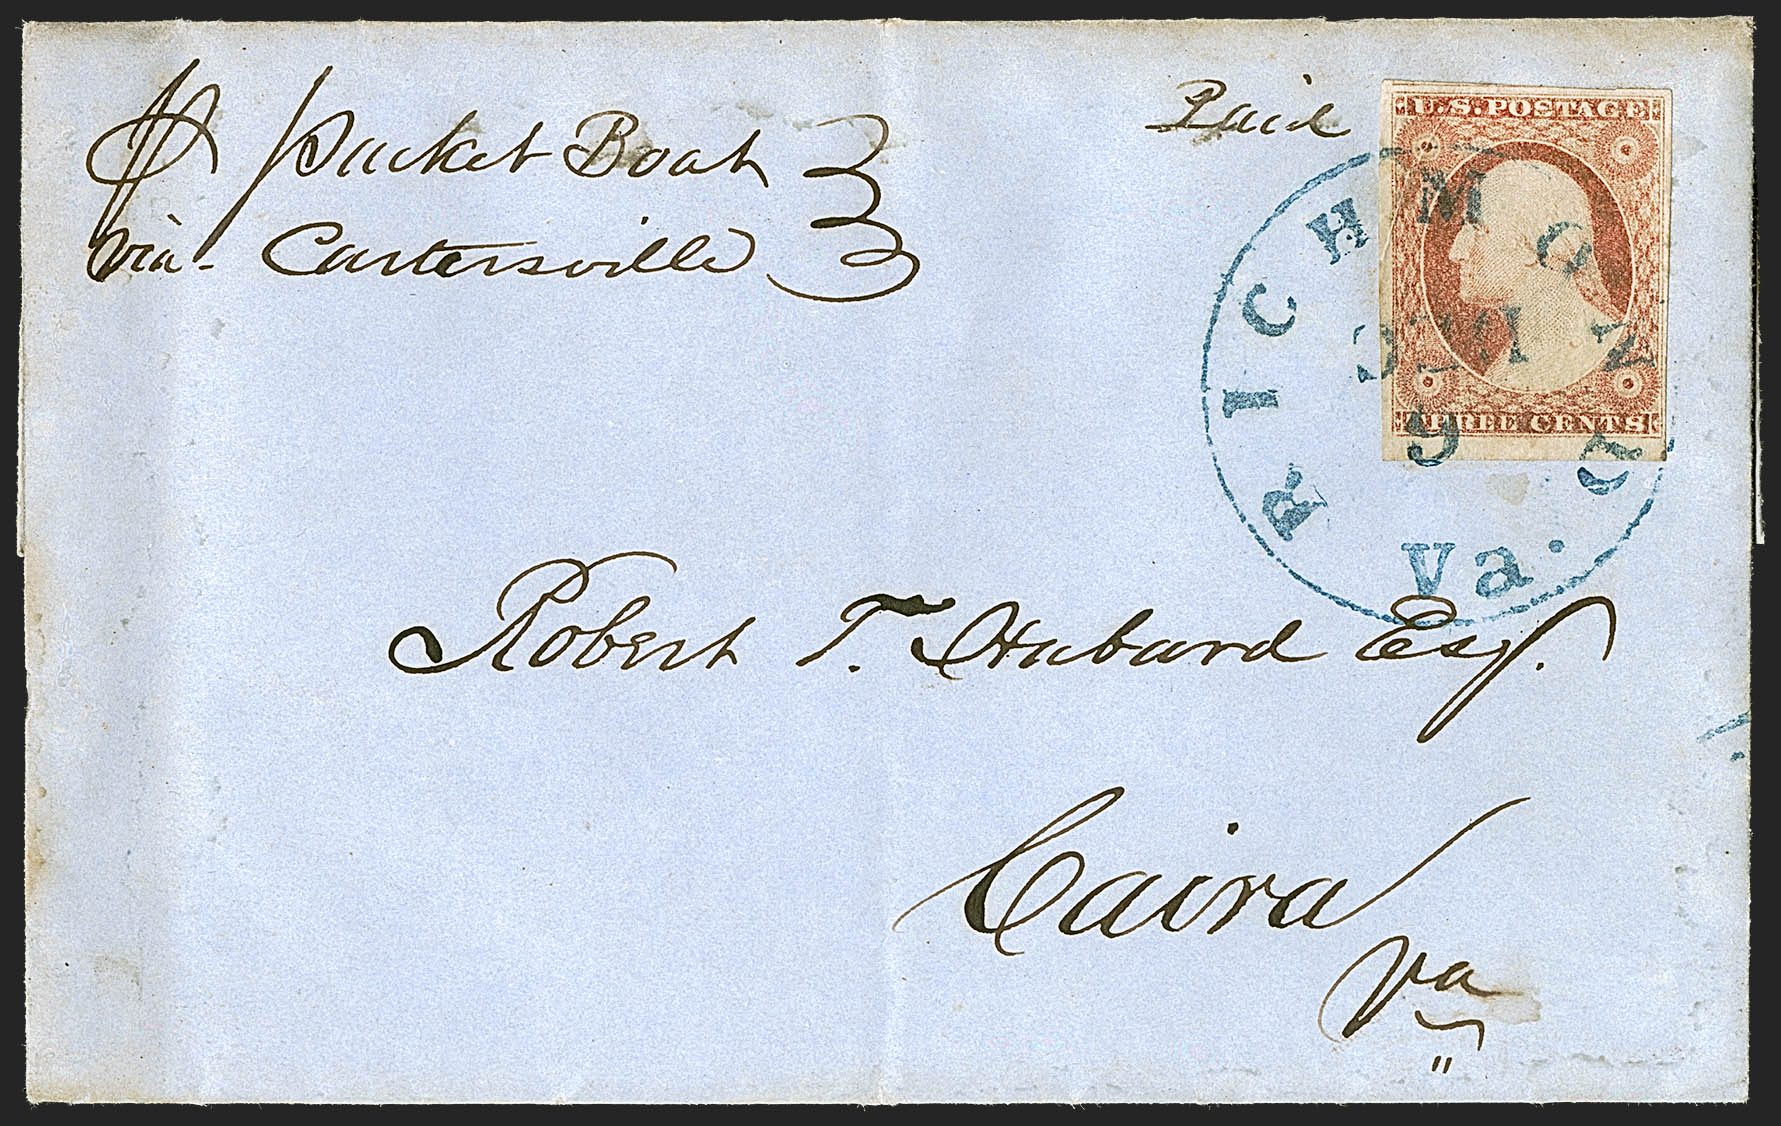 Paid
U.S. POSTAGE
THREE CENTS
RICHMOND
Va.
DEC
9
℔ Packet Boat
via - Cartersville
Robert T. Hubard Esqr.
Caira
Va